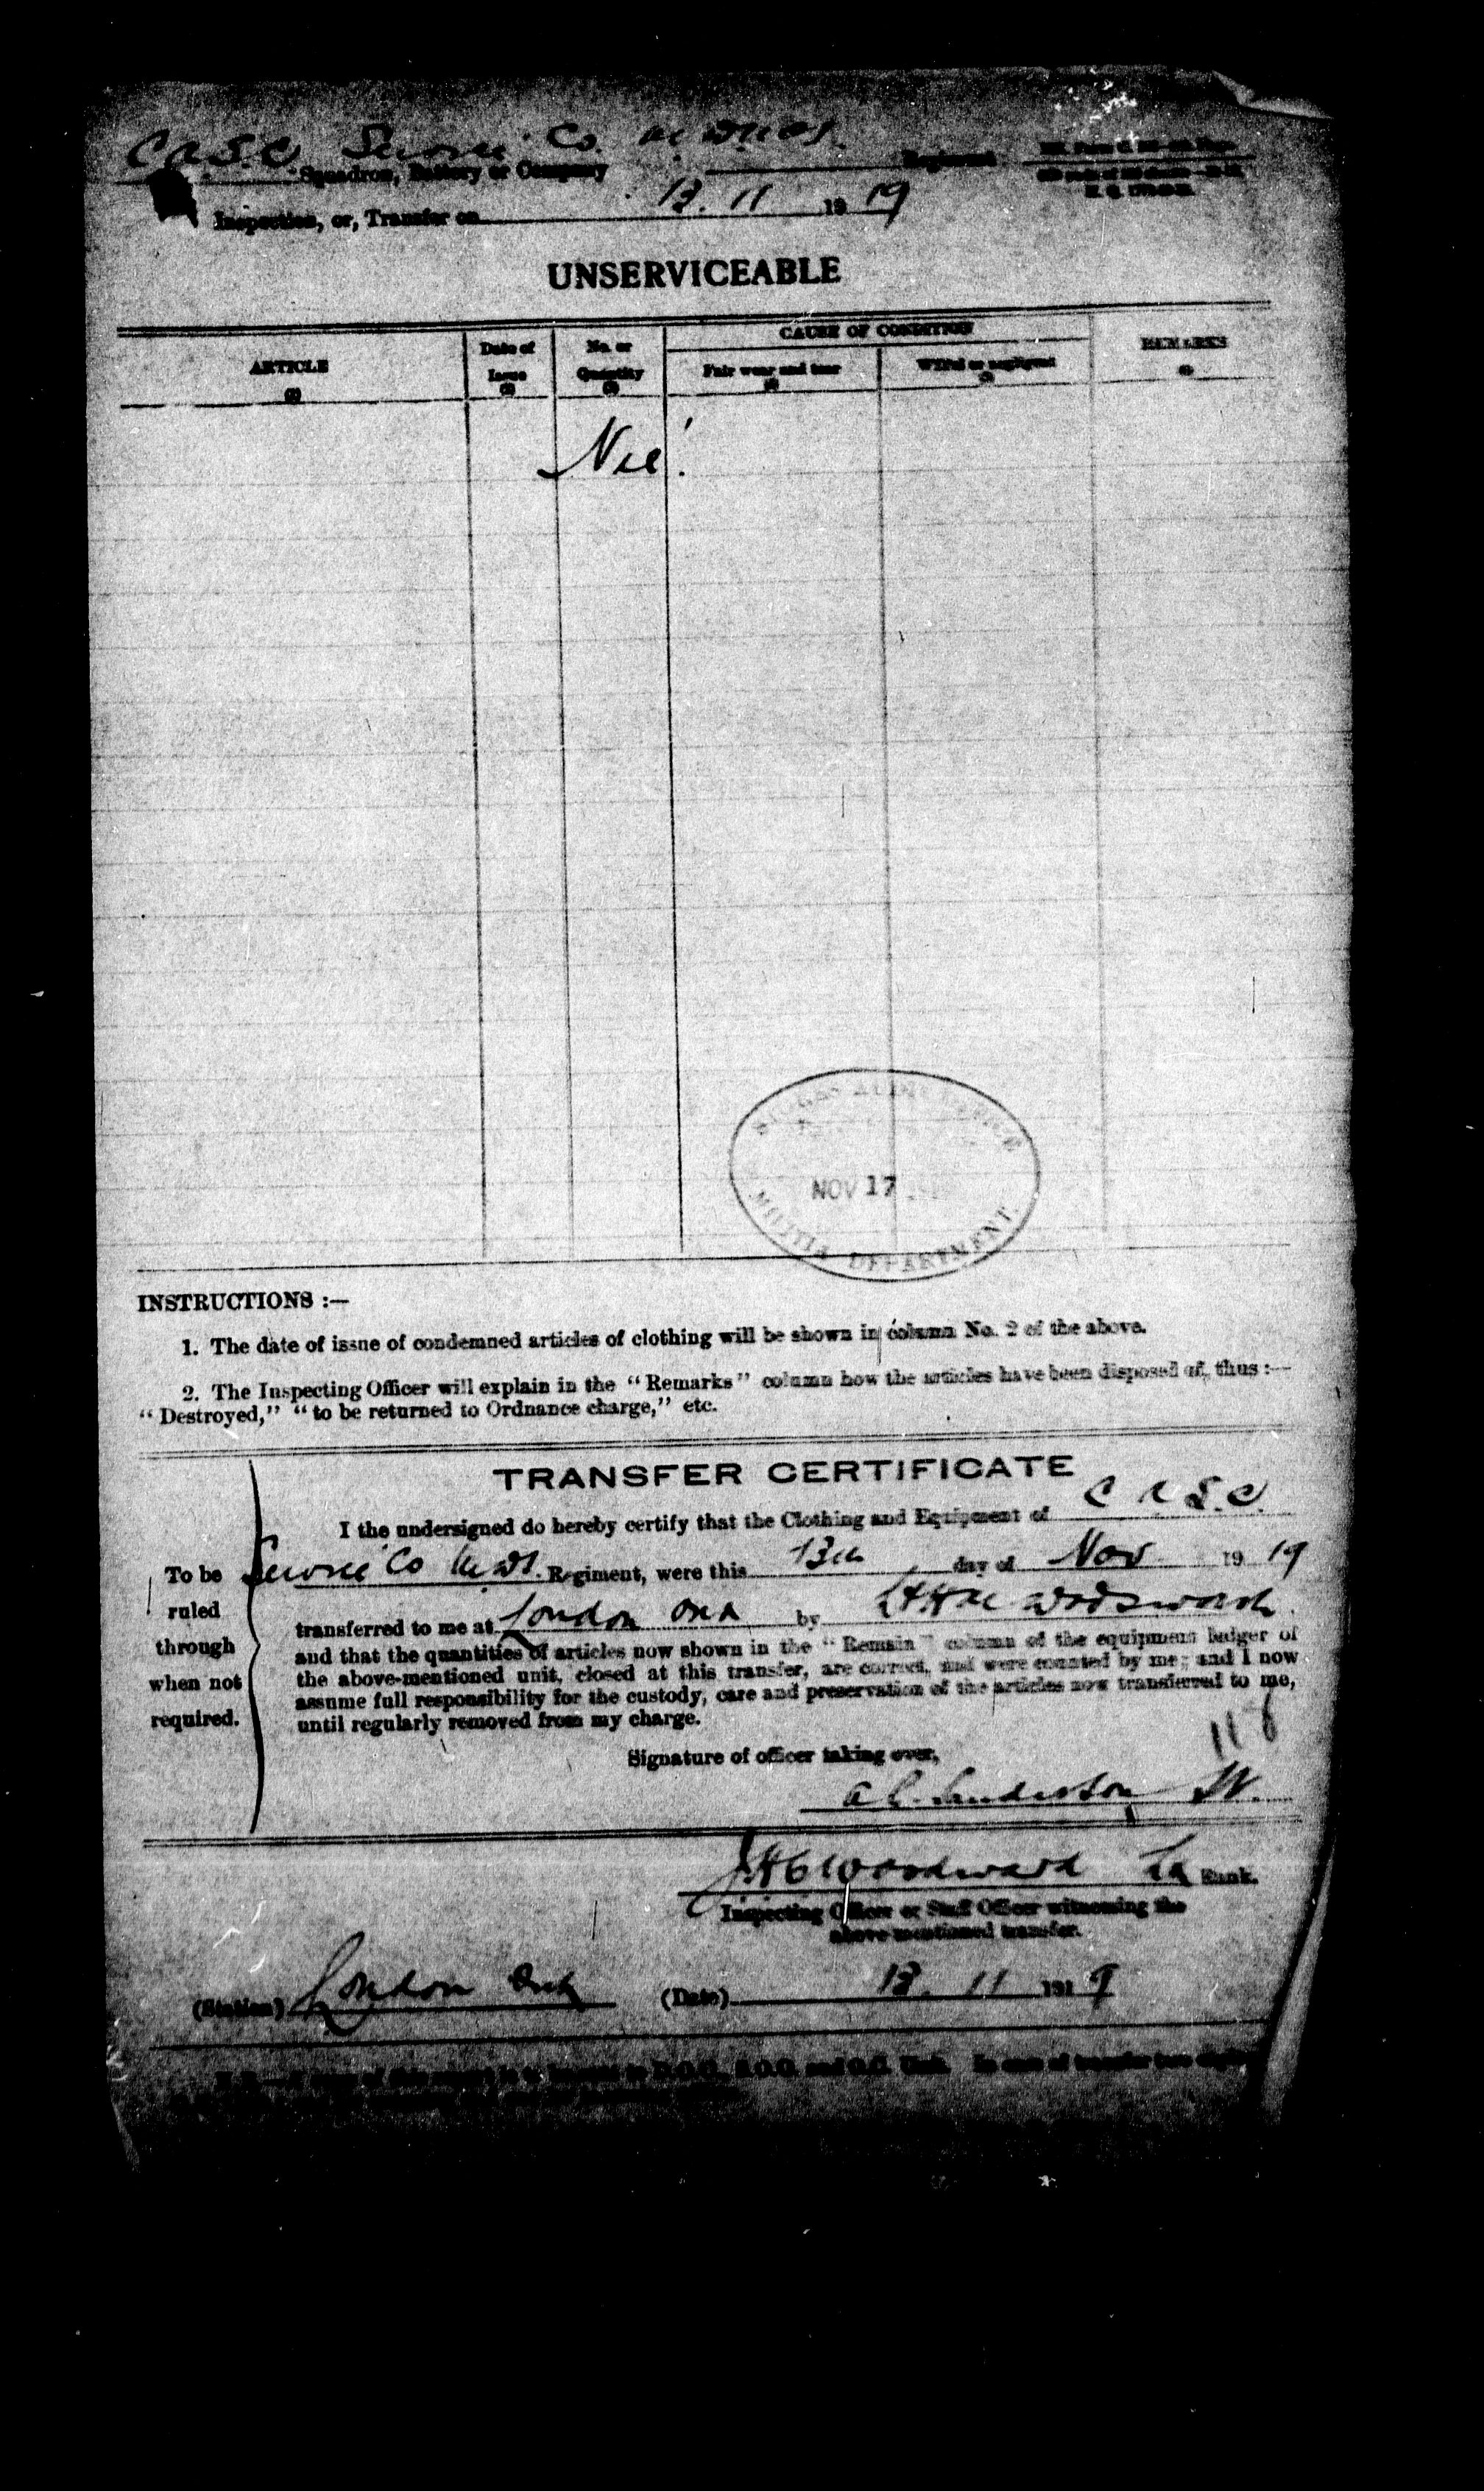 C A.S.C. Service Co.
Squadron, Battery or Company Regiment
Inspection, or, Transfer on 13. 11 1919
UNSERVICEABLE
ARTICLE
Date of Issue
No. or Quantity
CAUSE OF CONDITION
Fair wear and tear
Wilful or negligent
REMARKS
Nil.
NOV 17
MILITIA DEPARTMENT
INSTRUCTIONS :—
1. The date of issue of condemned articles of clothing will be shown in column No. 2 of the above.
2. The Inspecting Officer will explain in the “Remarks” column how the articles have been disposed of, thus :—
“Destroyed,” “to be returned to Ordnance charge,” etc.
TRANSFER CERTIFICATE
I the undersigned do hereby certify that the Clothing and Equipment of C A S.C.
Service Co Regiment, were this 13th day of Nov 1919
transferred to me at London Ont by
and that the quantities of articles now shown in the “Remain” column of the equipment ledger of
the above-mentioned unit, closed at this transfer, are correct, and were counted by me; and I now
assume full responsibility for the custody, care and preservation of the articles now transferred to me,
until regularly removed from my charge.
To be
ruled
through
when not
required.
118
Signature of officer taking over,
Woodward Rank.
Inspecting Officer or Staff Officer witnessing the
above-mentioned transfer.
(Station) London Ont (Date) 13. 11 1919